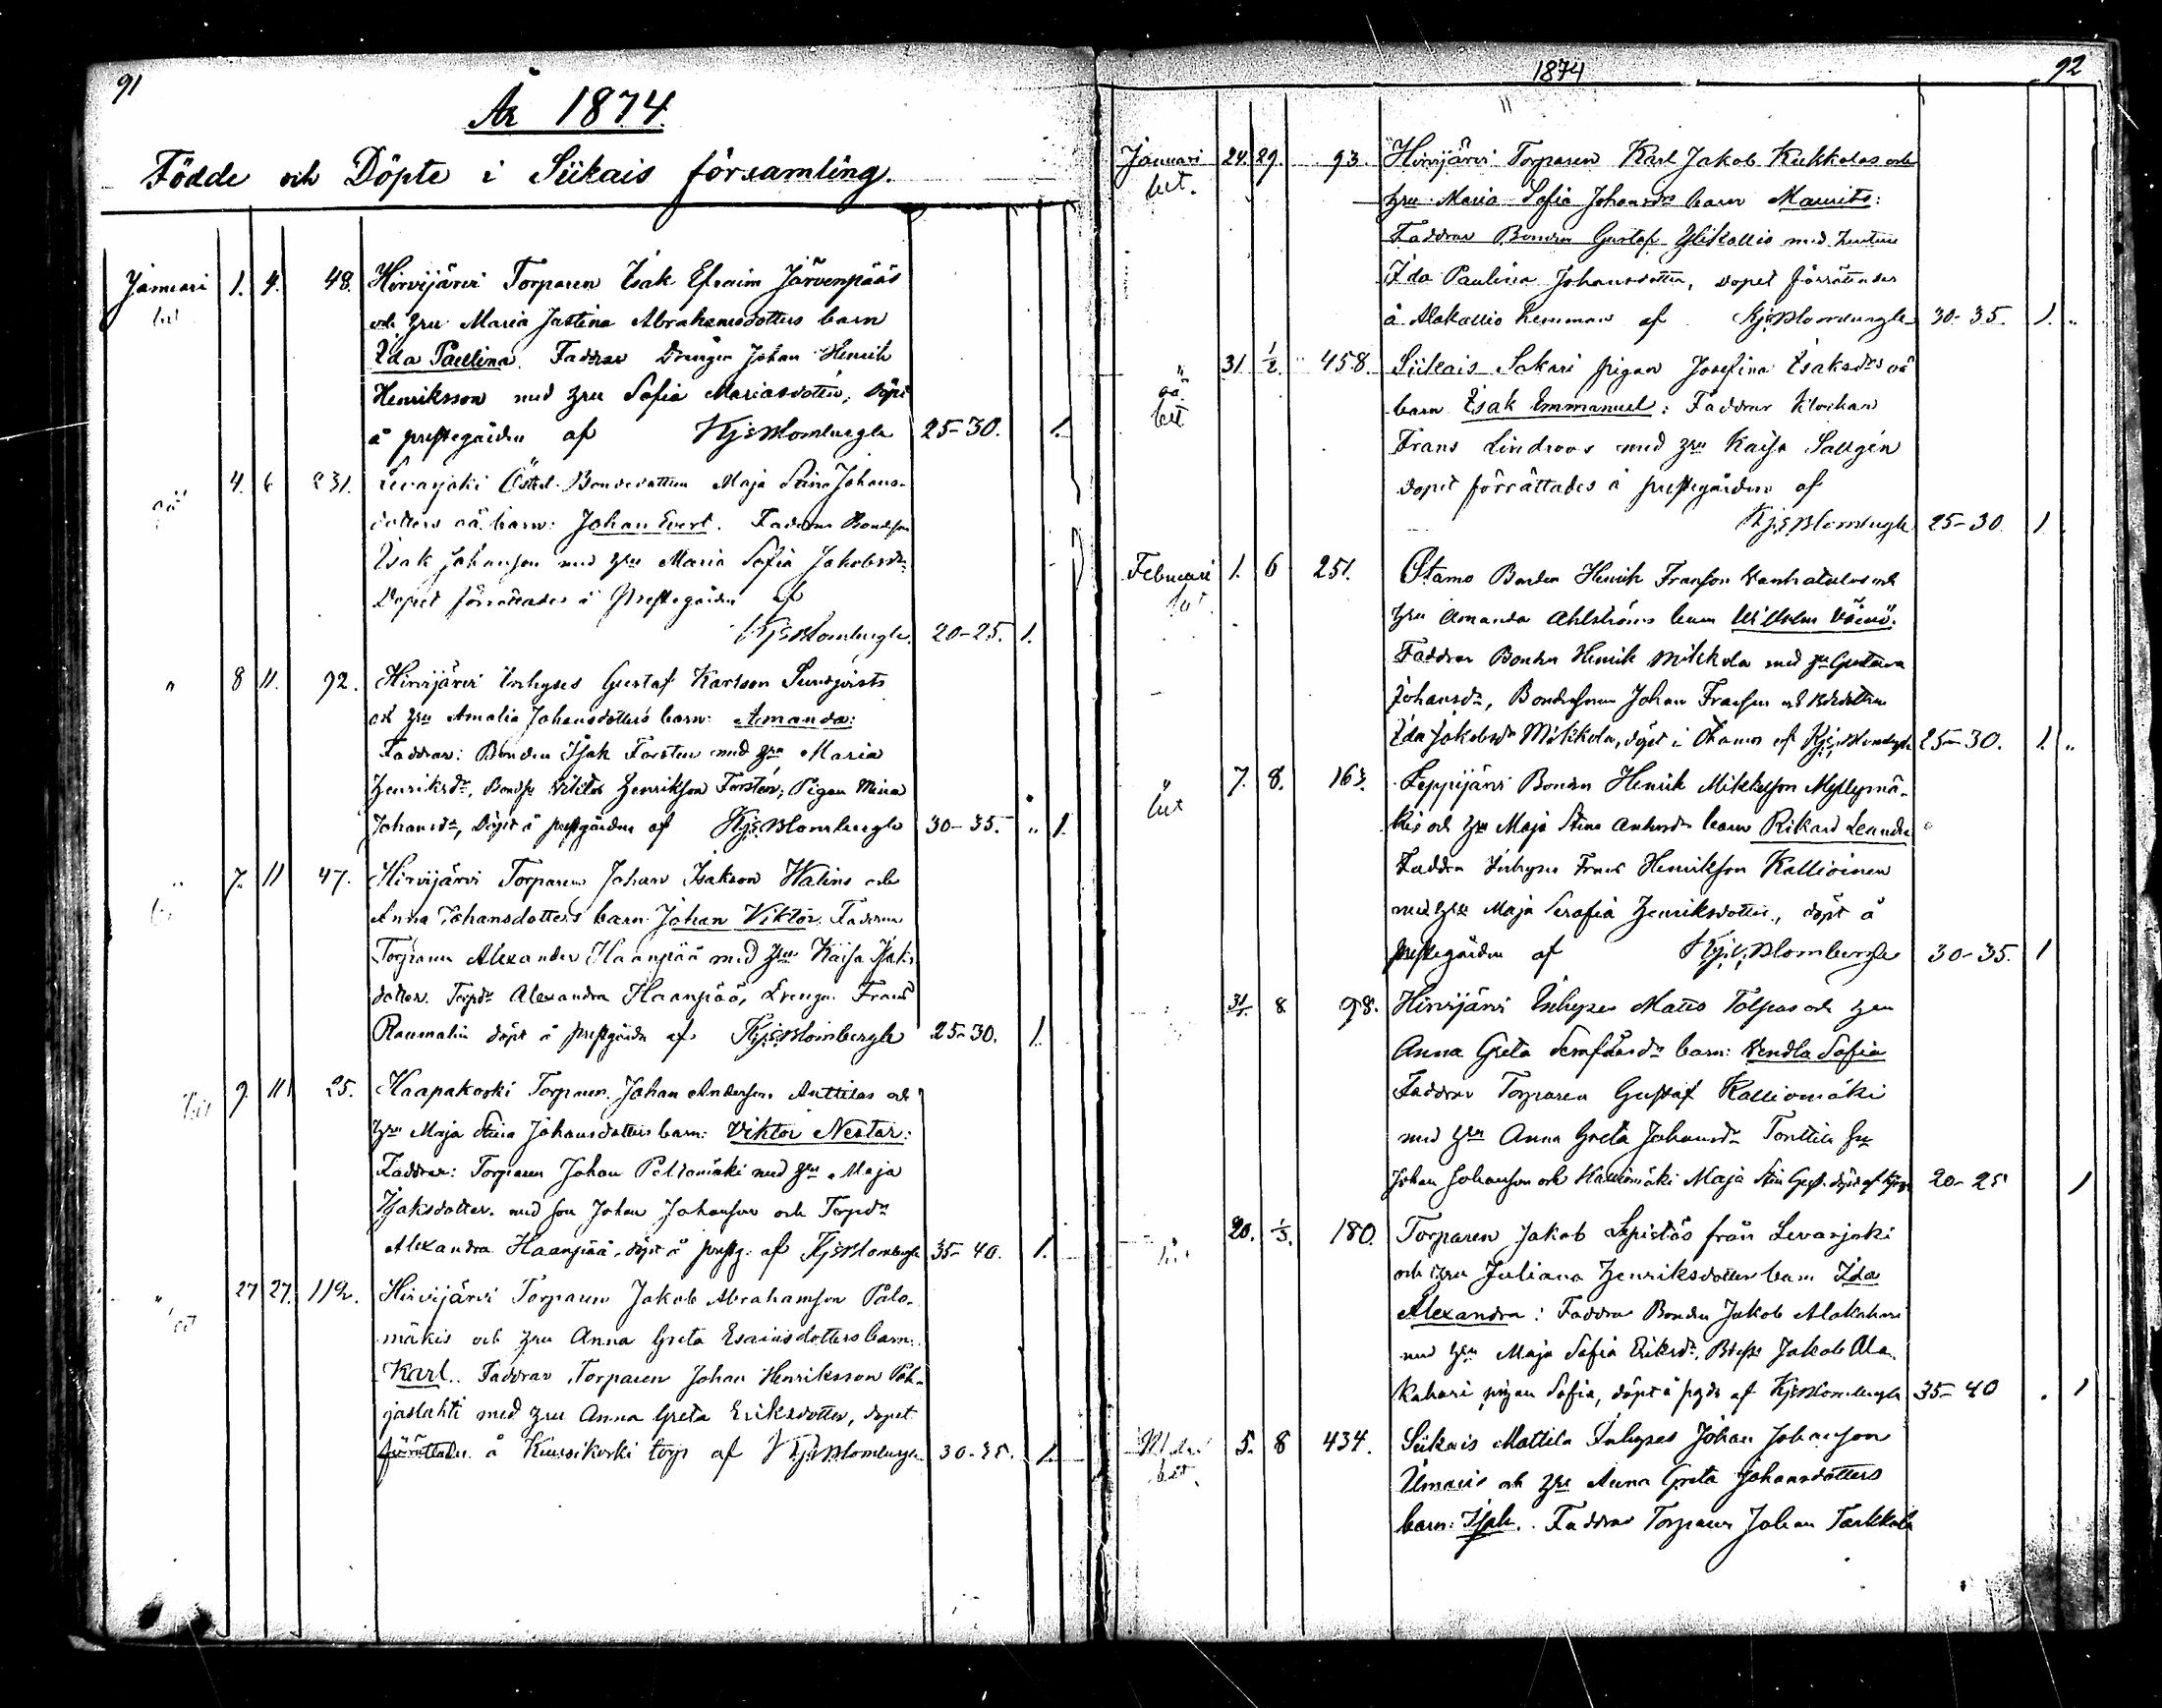 91
År 1874.
Födde och Döpte i Siikais församling.
Januari 1. 4. 48. Hirvijärvi Torparen Isak Efraim Järvenpääs
och hru Maria Justina Abrahamsdotters barn
Ida Paulina. Faddrar Drängen Johan Henrik
Henriksson med hru Sofia Mariasdotter, döpt
å prestegården af Kjs Blomberg 25-30. 1.
oä 4. 6 231. Levasjoki Bondedottren Maja Stina Johans-
dotters oä barn: Johan Evert. Faddrar
Isak Johansson med hru Maria Sofia Jakobsdr
Dopet förrättades å Prestegården af
Kjs Blomberg. 20-25. 1.
" 8 11. 92. Hirvijärvi Inhyses Gustaf Karlson Sundqvists
och hru Amalia Johansdotters barn: Amanda:
Faddrar: Bonden Isak Forsten med hru Maria
Henriksdr, Viktor Henriksson Forstén, Pigan Mina
Johansdr, Döpt å prestgården af Kjs Blomberg 30-35. " 1.
" 7. 11 47. Hirvijärvi Torparen Johan Isakson Walins och
Anna Johansdotters barn Johan Viktor. Faddrar
Torparen Alexander Haanpää med hru Kaisa Isaks-
dotter. Torpdr Alexandra Haanpää, Drängen Frans
Raumalin döpt å prestgården af Kjs Blomberg 25-30. 1.
9. 11 25. Haapakoski Torparen Johan Andersson Anttilas och
hru Maja Stina Johansdotters barn: Viktor Nestor:
Faddrar: Torparen Johan Peltomäki med hru Maja
Isaksdotter. med son Johan Johansson och Torpdr
Alexandra Haanpää, döpt å prestg. af Kjs Blomberg 35-40. 1.
" 27 27. 112. Hirvijärvi Torparen Jakob Abrahamsson Palo-
mäkis och hru Anna Greta Esaiisdotters barn:
Karl. Faddrar Torparen Johan Henriksson Poh-
jaslahti med hru Anna Greta Eriksdotter, dopet
förrättades å Kuusikoski torp af Kjs Blomberg 30-35. 1.
1874
92
Januari 24. 29. 93. Hirvijärvi Torparen Karl Jakob Kukkolas och
bet.
hru Maria Sofia Johansdrs barn Maurits:
Faddrar Bonden Gustaf Ylikallio med hustru
Ida Paulina Johansdotter, dopet förrättades
å Alakallio hemman af Kjs Blomberg 30-35. 1. "
" 31 1/2. 458. Siikais Sakari pigan Josefina Isaksdrs oä
oä.
bet
barn Isak Emmanuel: Faddrar Klockaren
Frans Lindroos med hru Kaisa Sallgén
dopet förrättades å prestegården af
Kjs Blomberg 25-30 1
Februari 1. 6 251. Otamo Bonden Henrik Fransson Vanhatalos och
hru Amanda Ahlströms barn Wilhelm Väinö.
Faddrar Bonden Henrik Mikkola med hru Gustava
Johansdr, Bondesonen Johan Fransson och
Ida Jakobsdr Mikkola, döpt i Otamo af Kjs Blomberg 25-30. 1. "
" 7. 8. 163. Leppijärvi Bonden Henrik Mikkelsson Myllymä-
kis och hru Maja Stina Andersdrs barn Rikard Leander
Faddrar Inhyses Frans Henriksson Kallioinen
med hru Maja Serafia Henriksdotter, döpt å
prestegården af Kjs Blomberg 30-35. 1
31/1. 8 98. Hirvijärvi Inhyses Matts Tolpas och hru
Anna Greta barn: Vendla Sofia
Faddrar Torparen Gustaf Kalliomäki
med hru Anna Greta Johansdr Tonttila
Johan Johansson och Kalliomäki Maja Stina 20-25 1
20. 1/3. 180. Torparen Jakob Lepistös från Levasjoki
och hru Juliana Henriksdotters barn Ida
Alexandra: Faddrar Bonden Jakob Alakahari
med hru Maja Sofia Eriksdr, Jakob Ala-
kahari pigan Sofia, döpt å af Kjs Blomberg 35-40 . 1
5. 8 434. Siikais Mattila Inhyses Johan Johansson
bet.
Ilmaris och hru Anna Greta Johansdotters
barn: Isak. Faddrar Torparen Johan Tarkkala